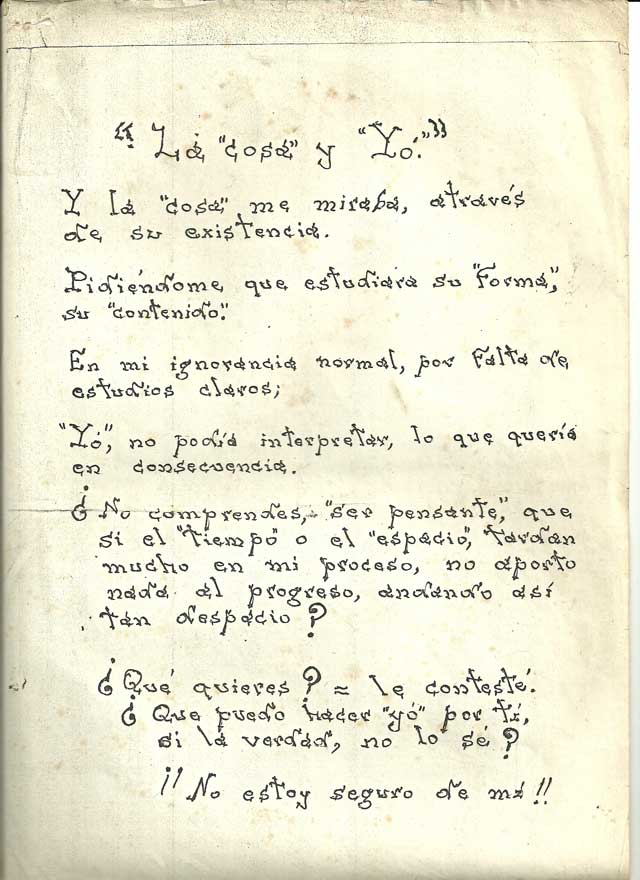 “ La "cosa" y "Yó." ”
Y la "cosa" me miraba, através
de su existencia.
Pidiéndome que estudiara su "Forma",
su "contenido".
En mi ignorancia normal, por falta de
estudios claros;
"Yó", no podía interpretar, lo que quería
en consecuencia.
¿ No comprendes, "ser pensante", que
si el "tiempo" o el "espacio", tardan
mucho en mi proceso, no aporto
nada al progreso, andando así
tan despacio ?
¿ Qué quieres ? = le contesté.
¿ Que puedo hacer "yó" por tí,
si la verdad, no lo sé ?
¡¡ No estoy seguro de mí !!